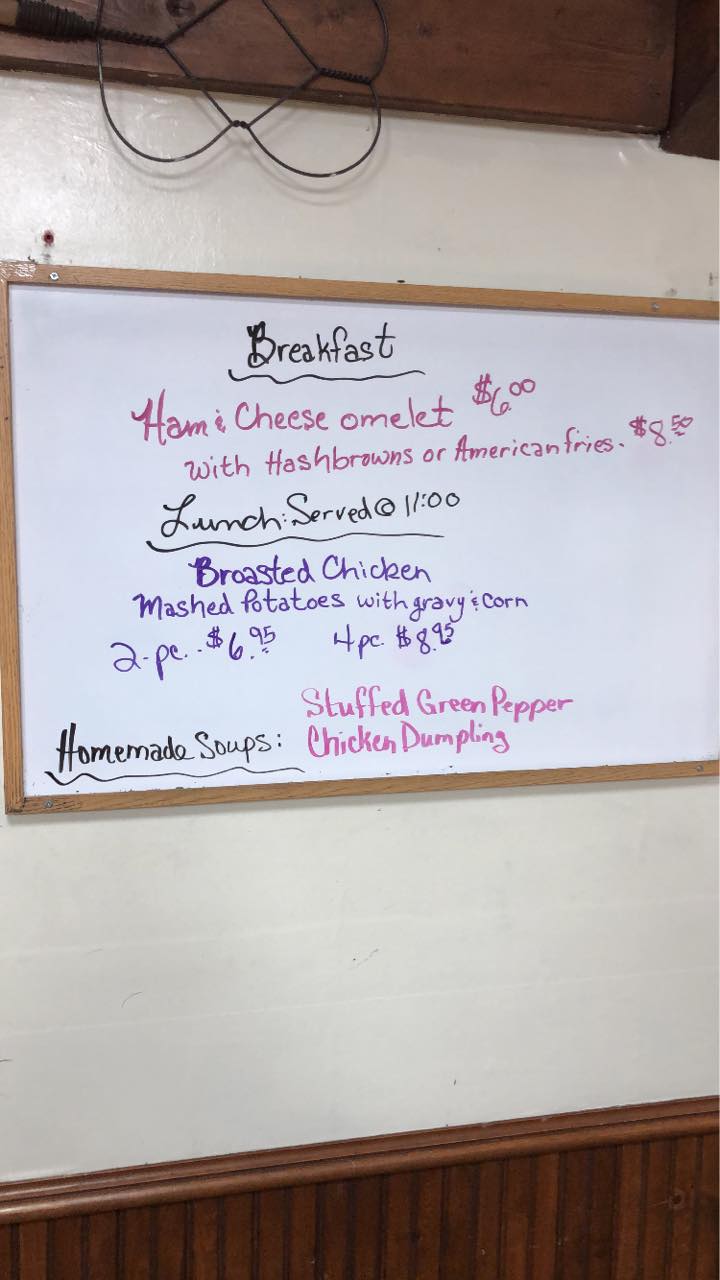 Breakfast
Ham & Cheese omelet $6.00
with Hashbrowns or American fries. $8.50
Lunch: Served @ 11:00
Broasted Chicken
Mashed Potatoes with gravy & corn
2-pc. - $6.95 4 pc. $8.95
Stuffed Green Pepper
Homemade Soups: Chicken Dumpling